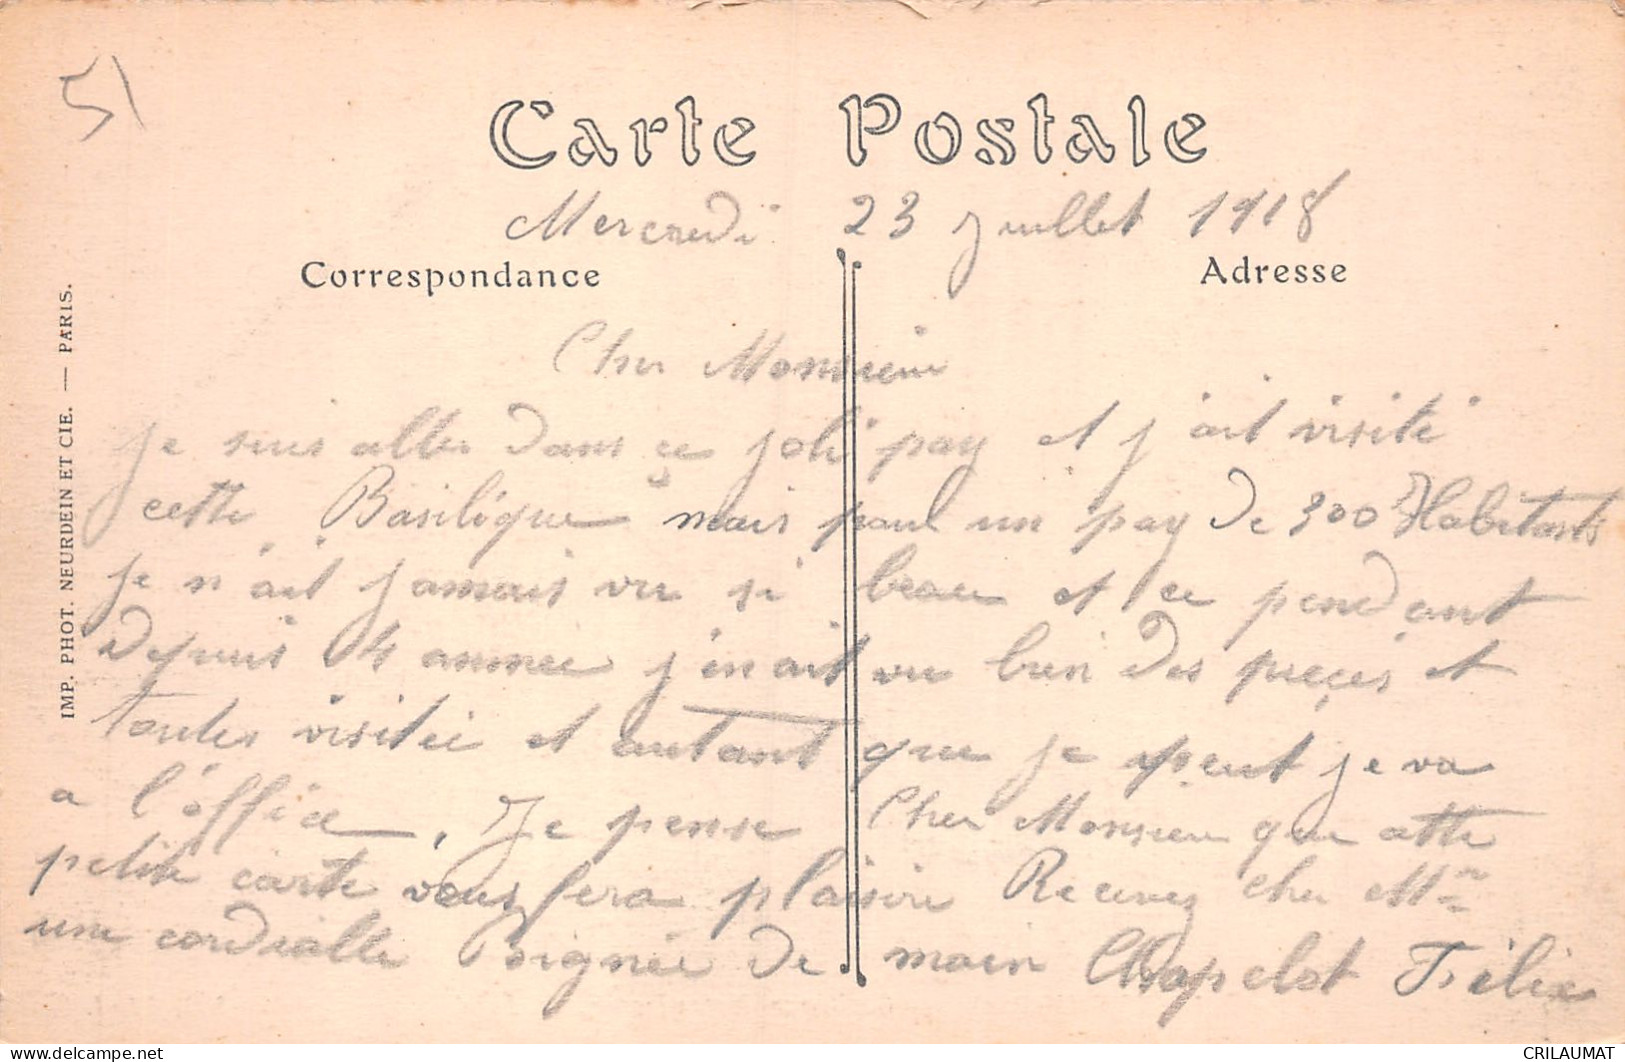 51
Carte Postale
Mercredi 23 Juillet 1918
Correspondance
Adresse
Cher Monsieur
Je suis aller dans ce joli pay et j'ait visité
cette Basilique mais pour un pay de 300 Habitants
je n'ait jamais vu si beau et ce pendant
Depuis 4 annee j'en ait vu bien des preçes et
toutes visitée et autant que je peut je va
a l'office, Je pense Cher Monsieur que cette
petite carte vous fera plaisire Recevez cher Mr
une cordialle Poignée de main Chapelot Félix
IMP. PHOT. NEURDEIN ET CIE. — PARIS.
CRILAUMAT